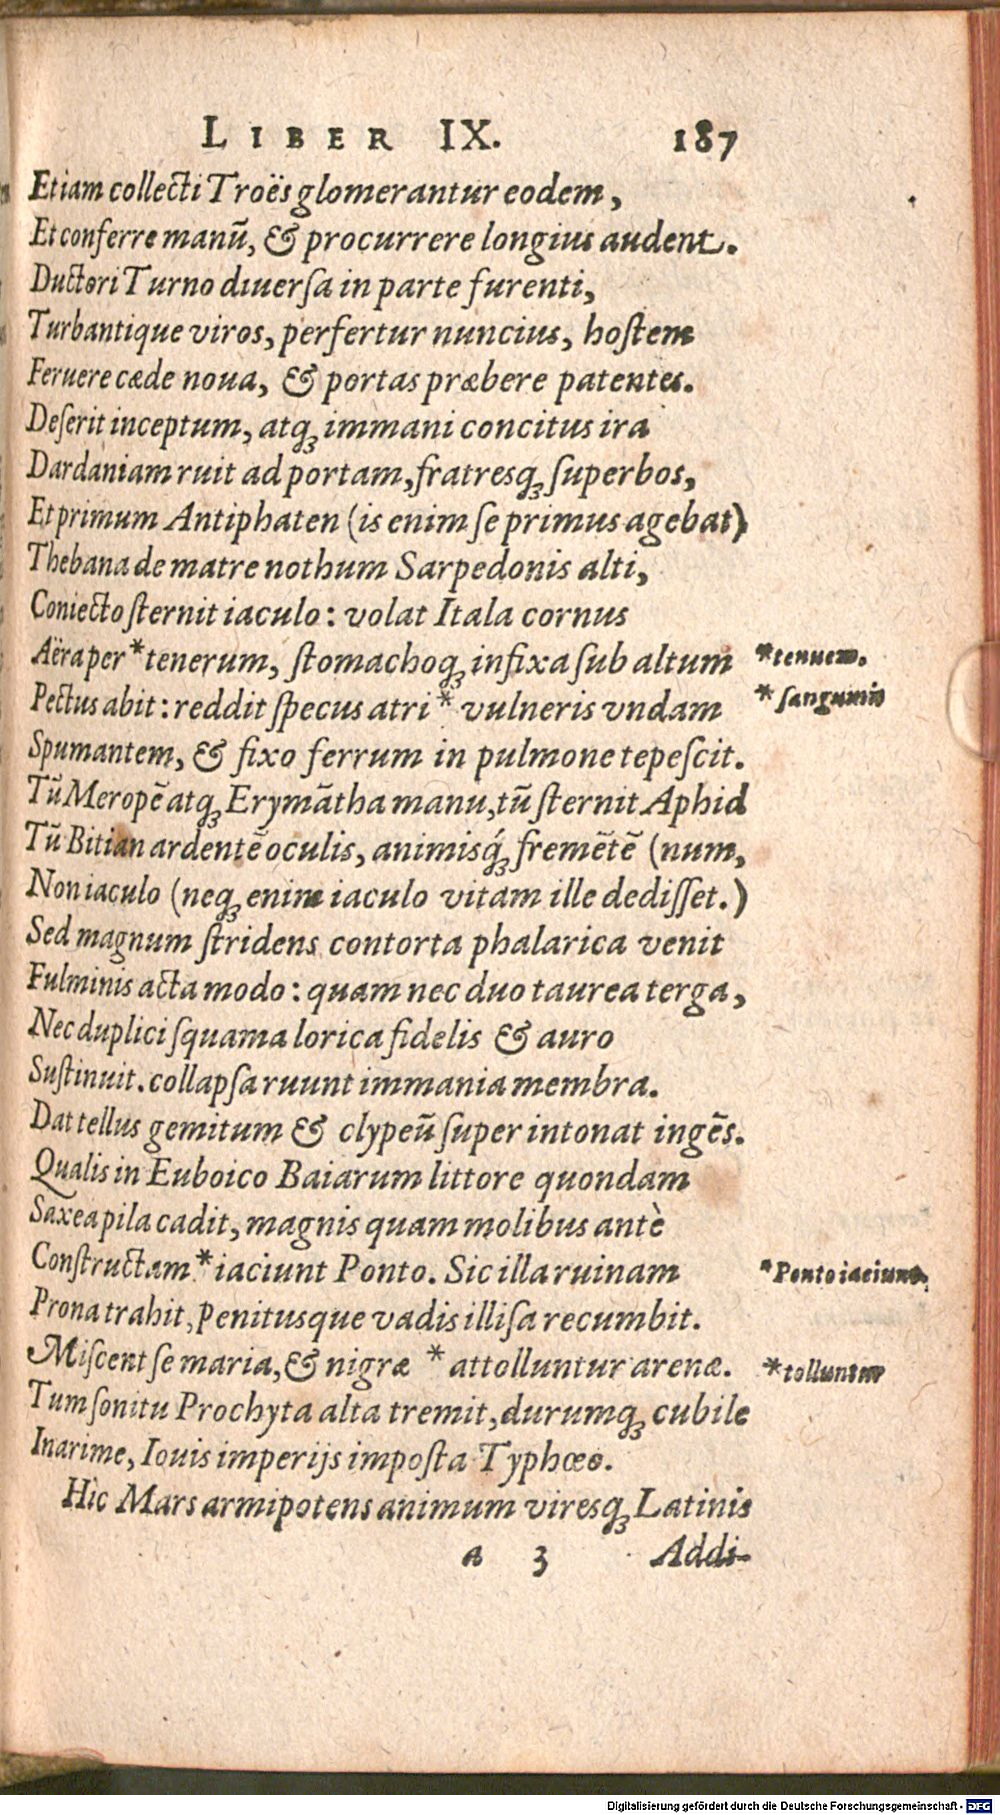 LIBER IX. 187
Etiam collecti Troës glomerantur eodem,
Et conferre manū, & procurrere longius audent.
Ductori Turno diuersa in parte furenti,
Turbantique viros, perfertur nuncius, hostem
Feruere cæde noua, & portas præbere patentes.
Deserit inceptum, atqꝫ immani concitus ira
Dardaniam ruit ad portam, fratresqꝫ superbos,
Et primum Antiphaten (is enim se primus agebat)
Thebana de matre nothum Sarpedonis alti,
Coniecto sternit iaculo: volat Itala cornus
Aëra per *tenerum, stomachoqꝫ infixa sub altum *tenuem.
Pectus abit: reddit specus atri * vulneris vndam * sanguinis
Spumantem, & fixo ferrum in pulmone tepescit.
Tū Meropē atqꝫ Erymātha manu, tū sternit Aphid
Tū Bitian ardentē oculis, animisqꝫ́ fremētē (num,
Non iaculo (neqꝫ enim iaculo vitam ille dedisset.)
Sed magnum stridens contorta phalarica venit
Fulminis acta modo: quam nec duo taurea terga,
Nec duplici squama lorica fidelis & auro
Sustinuit. collapsa ruunt immania membra.
Dat tellus gemitum & clypeū super intonat ingēs.
Qualis in Euboico Baiarum littore quondam
Saxea pila cadit, magnis quam molibus antè
Constructam *iaciunt Ponto. Sic illa ruinam *Ponto iaciunt.
Prona trahit, penitusque vadis illisa recumbit.
Miscent se maria, & nigræ * attolluntur arenæ. *tolluntur
Tum sonitu Prochyta alta tremit, durumqꝫ cubile
Inarime, Iouis imperijs imposta Typhœo.
Hìc Mars armipotens animum viresqꝫ Latinis
a 3 Addi-
Digitalisierung gefördert durch die Deutsche Forschungsgemeinschaft - DFG